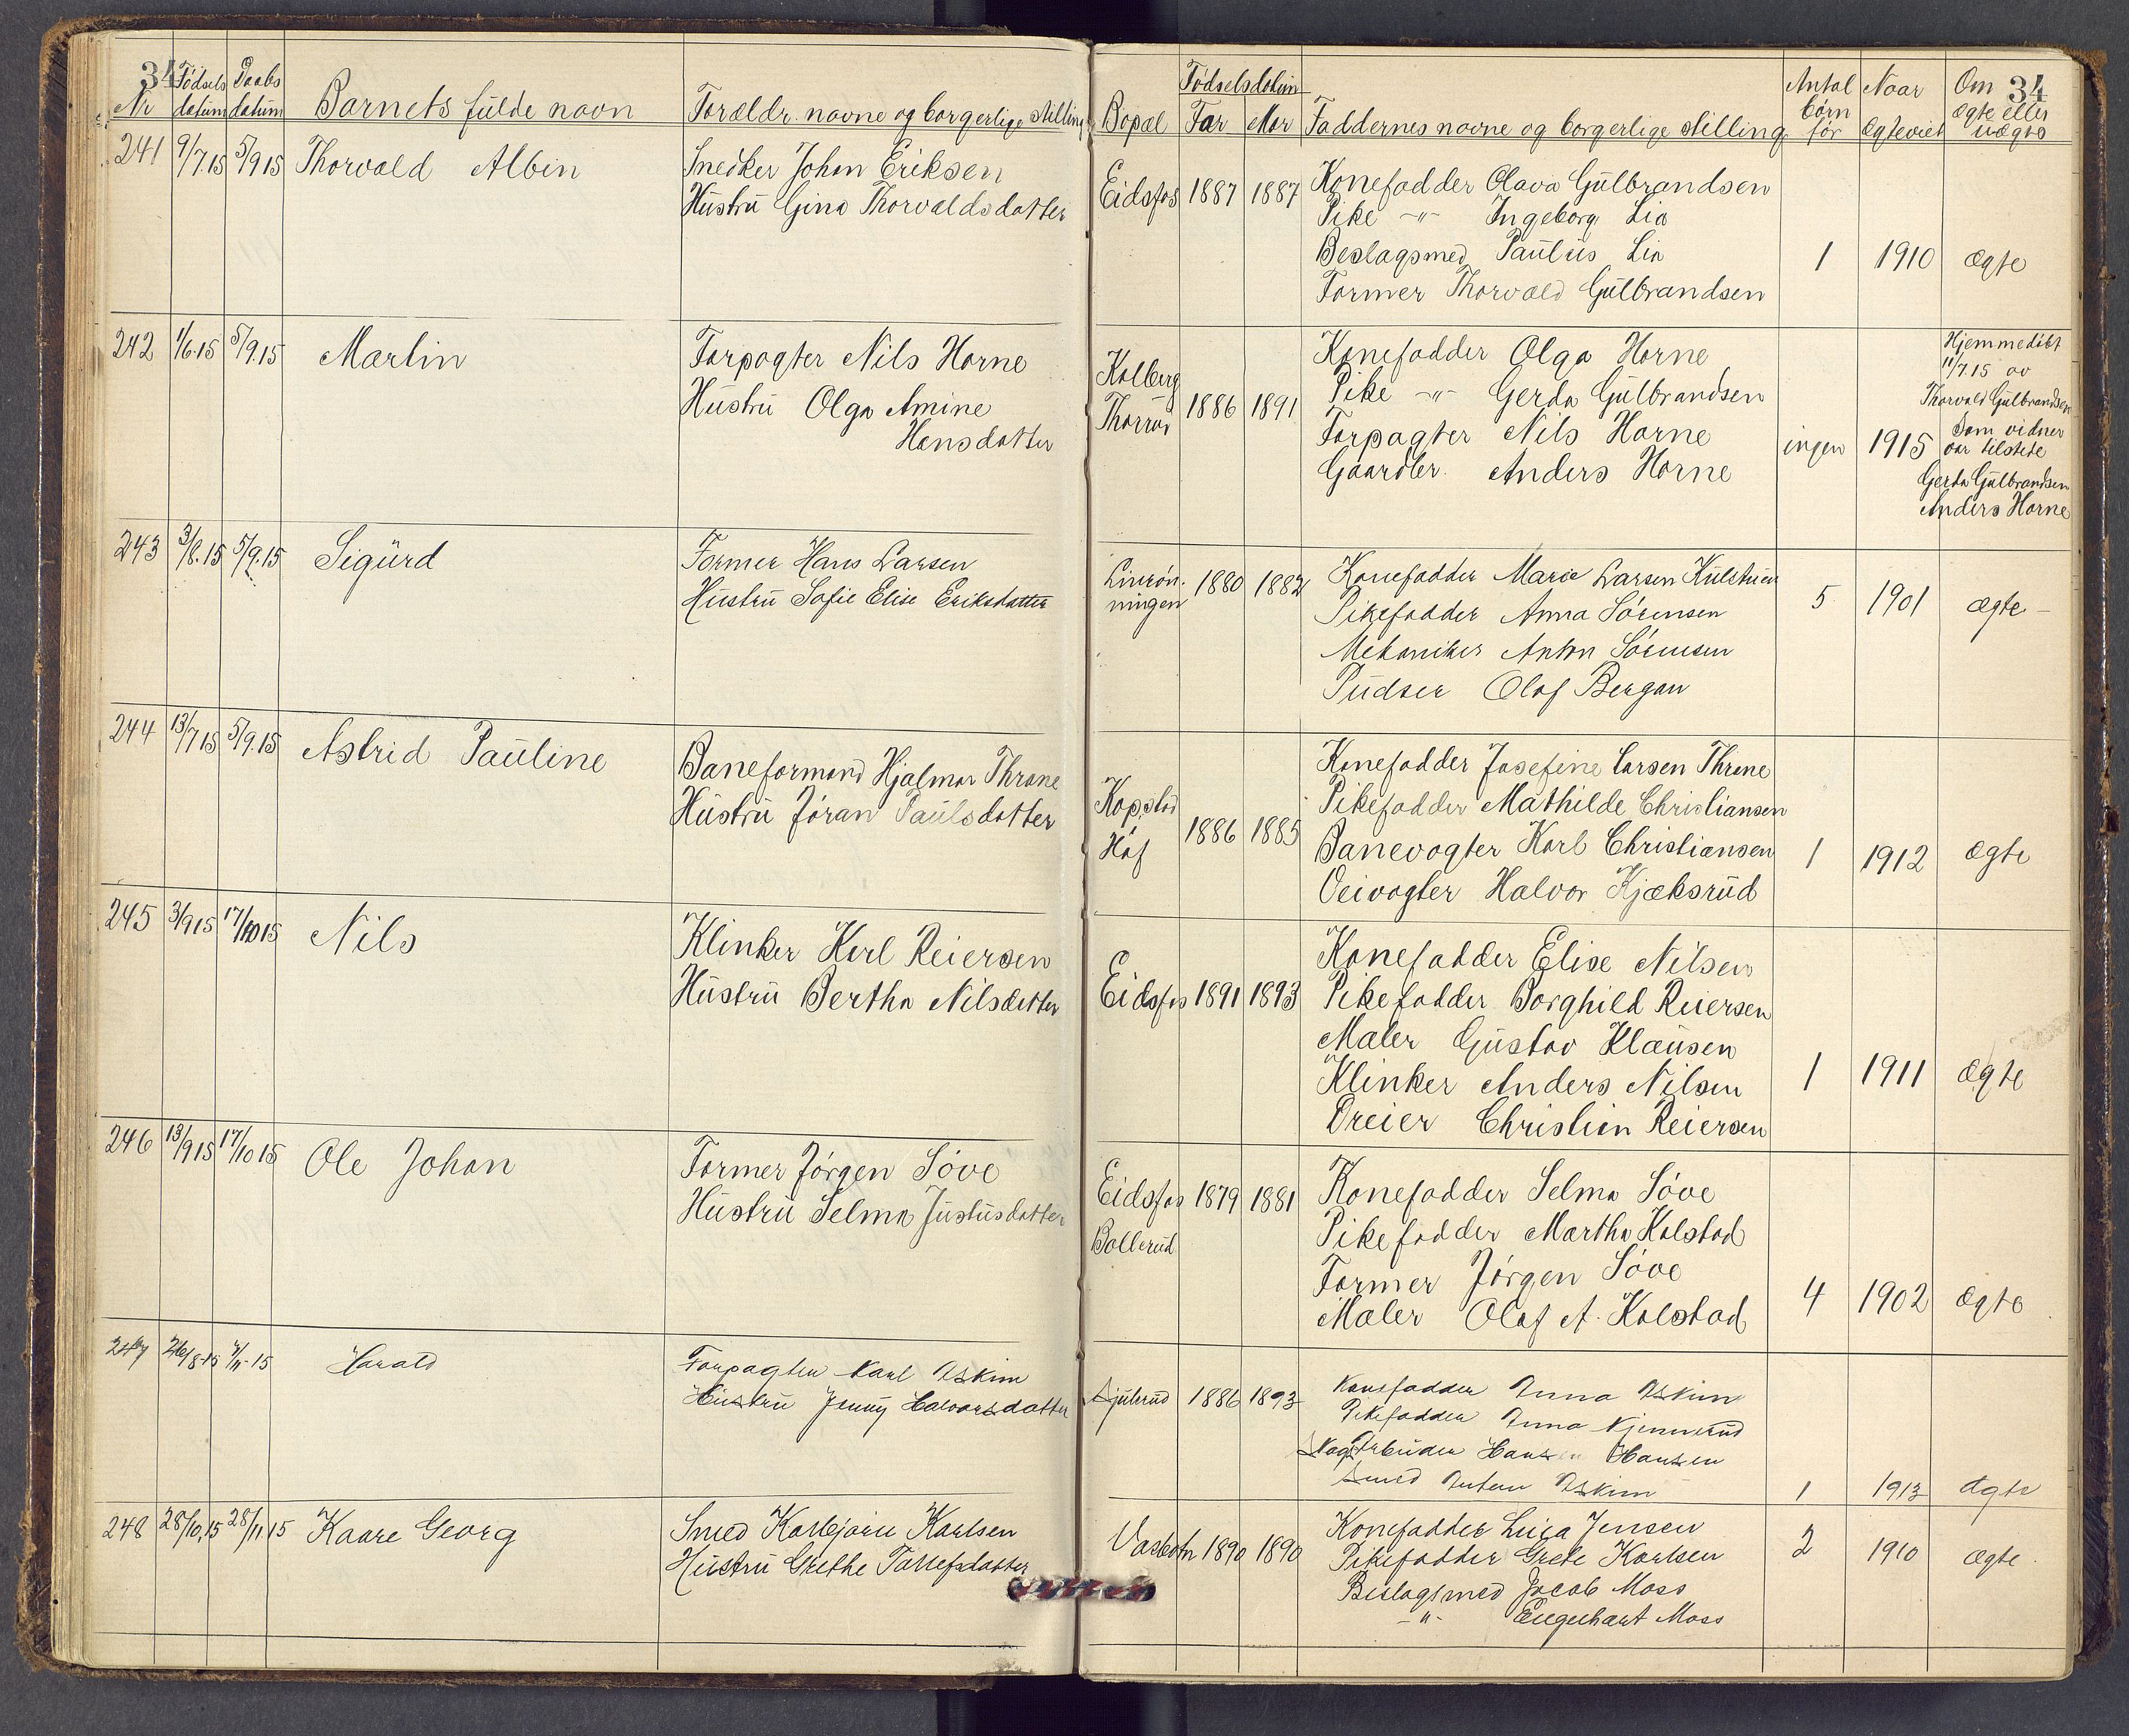 34
Nr Fødsels datum Daabs datum Barnets fulde navn Foreldr. navne og borgerlige stilling Bopæl Fødselsdatum Far Mor Faddernes navne og borgerlige stilling Antal børn før Naar Ægteviet Om Ægte eller uægte
34
241 9/7.15 5/9 15 Thorvald Albin
Snedker Johan Eriksen
Hustrü Gina Thorvaldsdatter
Eidsfos 1887 1887
Konefadder Olava Gülbrandsen
Pike -"- Ingeborg Lia
Beslagsmed Paülüs Lia
Former Thorvald Gülbrandsen
1 1910 Ægte
242 1/6.15 5/9.15 Martin
Forpagter Nils Horne
Hüstrü Olga Amine
Hansdatter
Kolberg
Thorrud
1886 1891
Konefadder Olga Horne
Pike -"- Gerda Gülbrandsen
Forpagter Nils Horne
Gaardbr. Anders Horne
ingen 1915
Hjemmedøbt
11/7.15 av
Thorvald Gülbrandsen
Som vidner
var tilstede
Gerda Gülbrandsen
Anders Horne
243 3/8.15 5/9.15 Sigürd
Former Hans Larsen
Hüstrü Sofie Elise Eriksdatter
Linrøn-
ningen
1880 1882
Konefadder Marie Larsen Külstuen
Pikefadder Anna Sørensen
Mekaniker Anton Sørensen
Püdser Olaf Bergan
5 1901 Ægte -
244 13/7 15 5/9.15 Astrid Paüline
Baneformand Hjalmar Throne
Hüstrü Jøran Paülsdatter
Kopstad
Hof
1886 1885
Konefadder Josefine Larsen Throne
Pikefadder Mathilde Christiansen
Banevogter Karl Christiansen
Veivogter Halvor Kjæksrüd
1 1912 Ægte
245 3/9 15 17/10 15 Nils
Klinker Karl Reiersen
Hüstrü Bertha Nilsdatter
Eidsfos 1891 1893
Konefadder Elise Nilsen
Pikefadder Borghild Reiersen
Maler Güstav Klaüsen
Klinker Anders Nilsen
Dreier Christian Reiersen
1 1911 Ægte
246 13/9 15 17/10 15 Ole Johan
Former Jørgen Søve
Hüstrü Selma Jüstüsdatter
Eidsfos
Bollerüd
1879 1881
Konefadder Selma Søve
Pikefadder Martha Kolstad
Former Jørgen Søve
Maler Olaf A. Kolstad
4 1902 Ægte
247 26/8-15 7/11-15 Harald
Forpagter Karl Askim
Hüstrü Jenny Halvorsdatter
Sjülerüd 1886 1893
Konefadder Anna Askim
Pikefadder Anna Kjennerüd
Skogarbeider Hans Hansen
Smed Anton Askim
1 1913 Ægte
248 28/10.15 28/11 15 Kaare Georg
Smed Karbjørn Karlsen
Hüstrü Grethe Tallefsdatter
Vasbotn 1890 1890
Konefadder Luisa Jensen
Pikefadder Grete Karlsen
Beslagsmed Jacob Moss
-"- Engelhart Moss
2 1910 Ægte